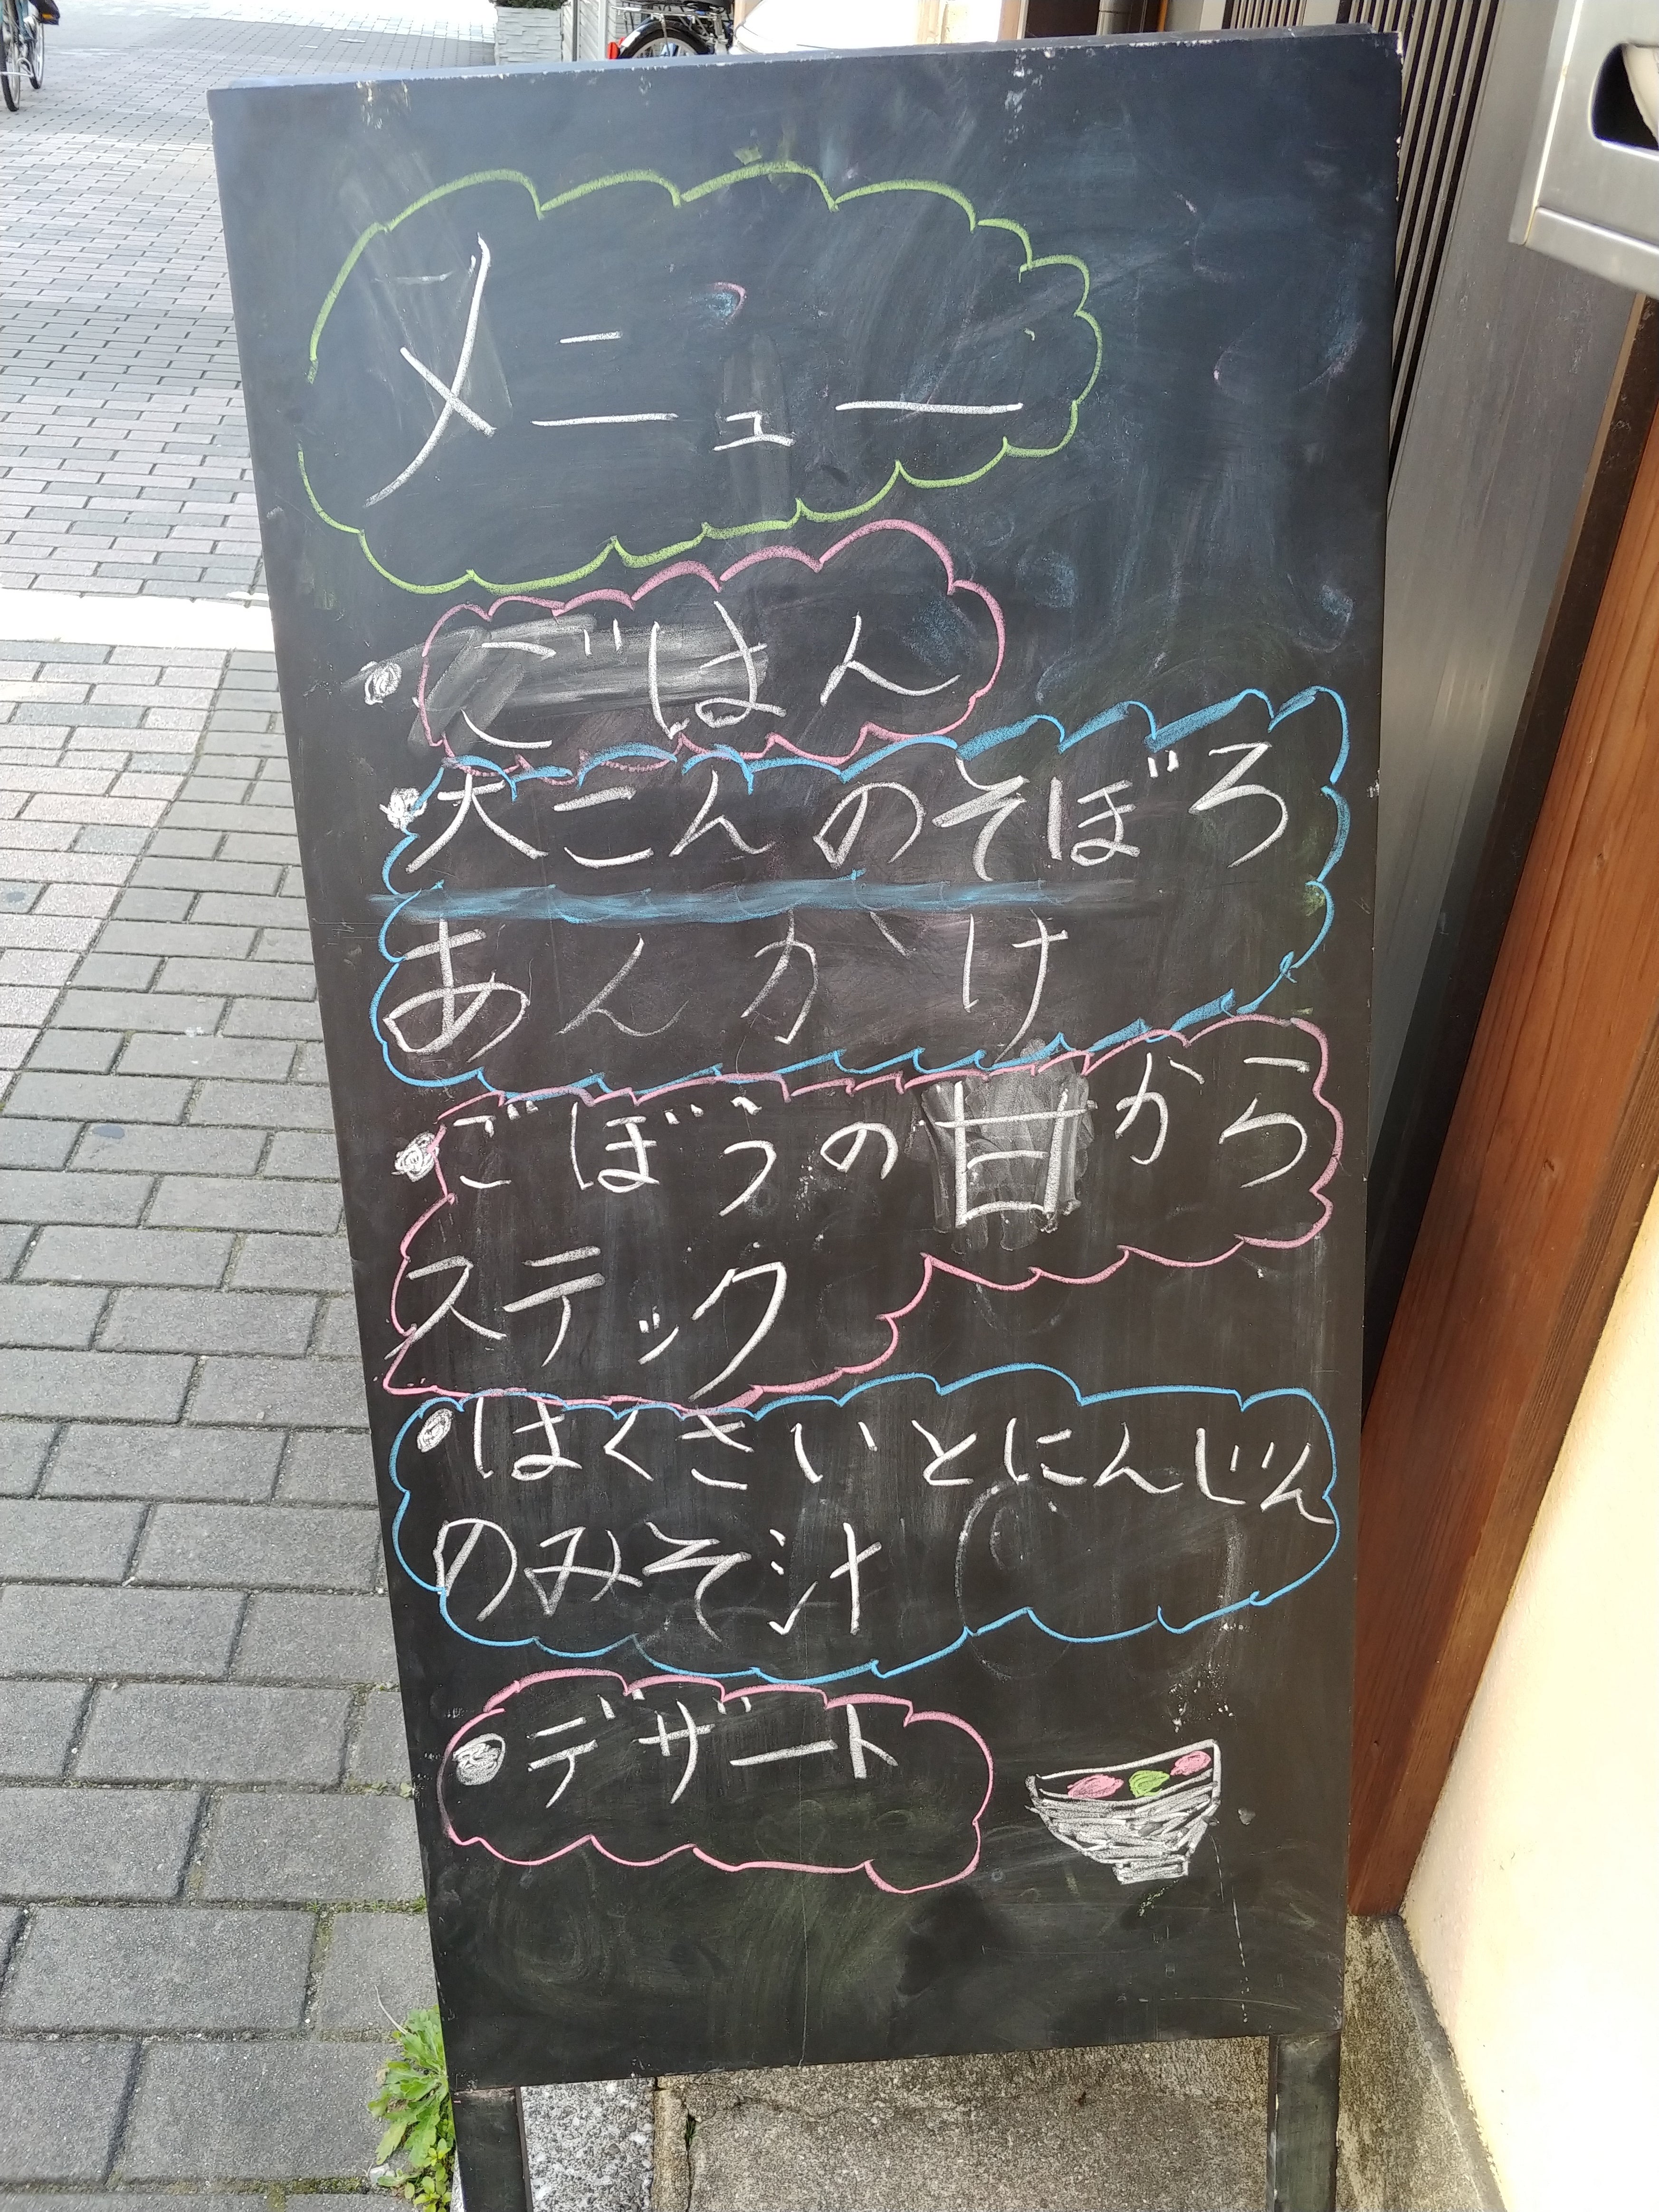 メニュー
・ごはん
・大こんのそぼろ
あんかけ
・ごぼうの甘から
ステック
・はくさいとにんじん
のみそ汁
・デザート